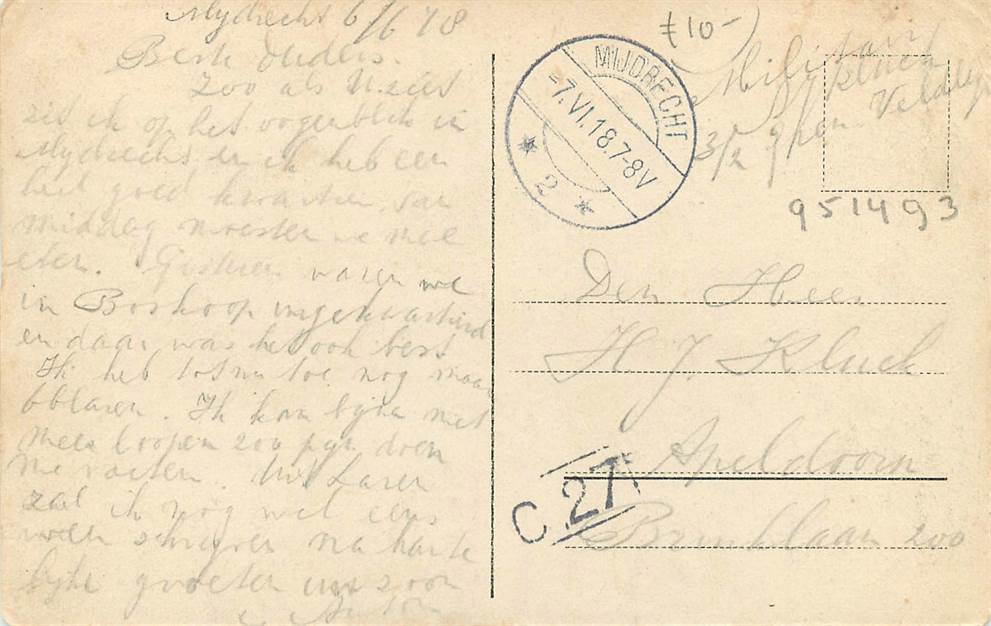 Mydrecht 6/6 '18
Beste Ouders.
Zoo als U ziet
zit ik op het oogenblik in
Mydrecht en ik heb een
heel goed kwartier, van
middag moesten we mee
eten. Gisteren waren we
in Boskoop ingekwartierd
en daar was het ook best
Ik heb tot nu toe nog maar
6 blaren. Ik kan bijna niet
meer loopen zoo pijn doen
me voeten. Uit Laren
zal ik nog wel eens
weer schrijven na harte
lijke groeten uw zoon
Anton
£10-
Militair
A Kluck
3/2 9 Veldleger
MIJDRECHT
-7.VI.18.7-8V
* 2 *
951493
Den Heer
H J. Kluck
Apeldoorn
C 27
Brinklaan 200